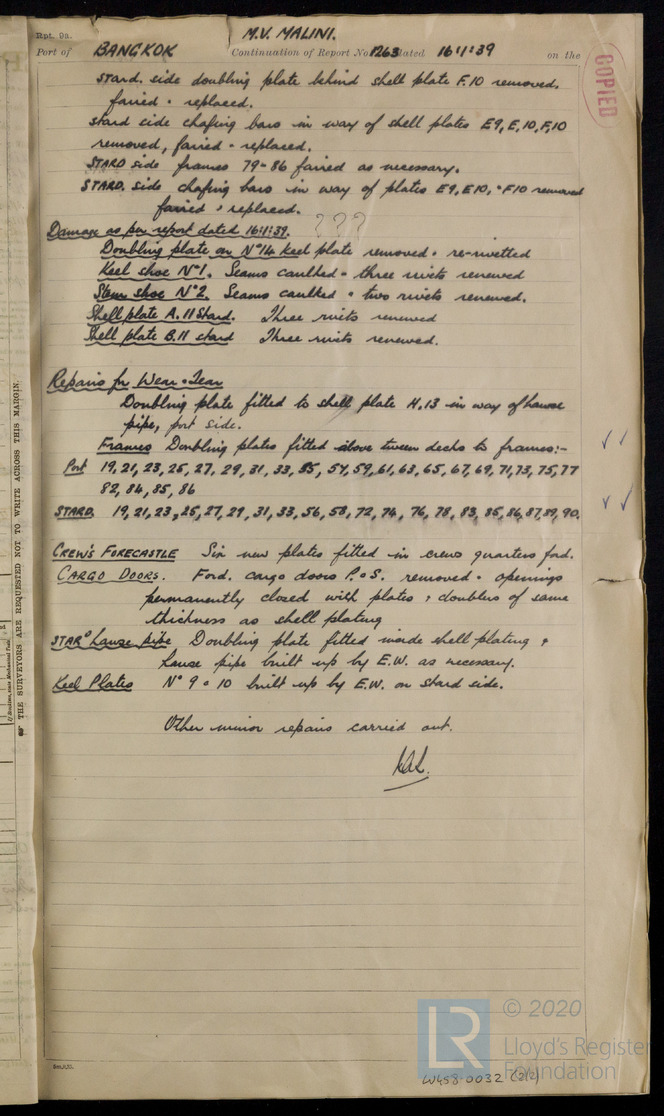 Rpt. 9a.
M.V. MALINI.
Port of BANGKOK Continuation of Report No 1263 dated 16:1:39 on the
COPIED
STARD. side doubling plate behind shell plate F.10 removed,
faired & replaced.
Stard side chafing bars in way of shell plates E9, E,10, F,10
removed, faired & replaced.
STARD side frames 79-86 faired as necessary.
STARD. side chafing bars in way of plates E9, E10, & F10 removed
faired & replaced.
Damage as per report dated 16:1:39. ? ? ?
Doubling plate on No 14 keel plate removed & re-rivetted
Keel shoe No 1. Seams caulked & three rivets renewed
Stem shoe No 2. Seams caulked & two rivets renewed.
Shell plate A.11 Stard. Three rivets renewed
Shell plate B.11 stard Three rivets renewed.
Repairs for Wear & Tear
Doubling plate fitted to shell plate H.13 in way of hawse
pipe, port side.
Frames Doubling plates fitted above tween decks to frames:-
Port 19, 21, 23, 25, 27, 29, 31, 33, 35, 57, 59, 61, 63, 65, 67, 69, 71, 73, 75, 77
82, 84, 85, 86
STARD. 19, 21, 23, 25, 27, 29, 31, 33, 56, 58, 72, 74, 76, 78, 83, 85, 86, 87, 89, 90.
CREW'S FORECASTLE Six new plates fitted in crews quarters ford.
CARGO DOORS. Ford. cargo doors P. & S. removed & openings
permanently closed with plates & doublers of same
thickness as shell plating
STARD hawse pipe Doubling plate fitted inside shell plating &
hawse pipe built up by E.W. as necessary.
Keel Plates No 9 & 10 built up by E.W. on stard side.
Other minor repairs carried out.
THE SURVEYORS ARE REQUESTED NOT TO WRITE ACROSS THIS MARGIN.
LR
© 2020
Lloyd's Register
Foundation
W458-0032 (2/2)